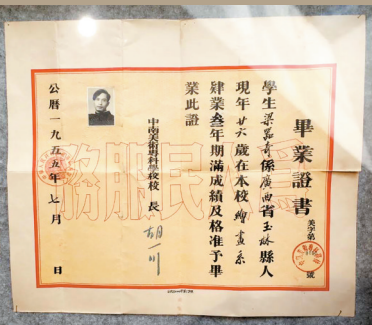 畢業證書
美字第 號
學生梁 奇係廣西省玉林縣人
現年廿六歲在本校繪畫系
肄業叁年期滿成績及格准予畢
業此證
中南美術專科學校校長 胡一川
公曆一九五五年七月 日
為人民服務